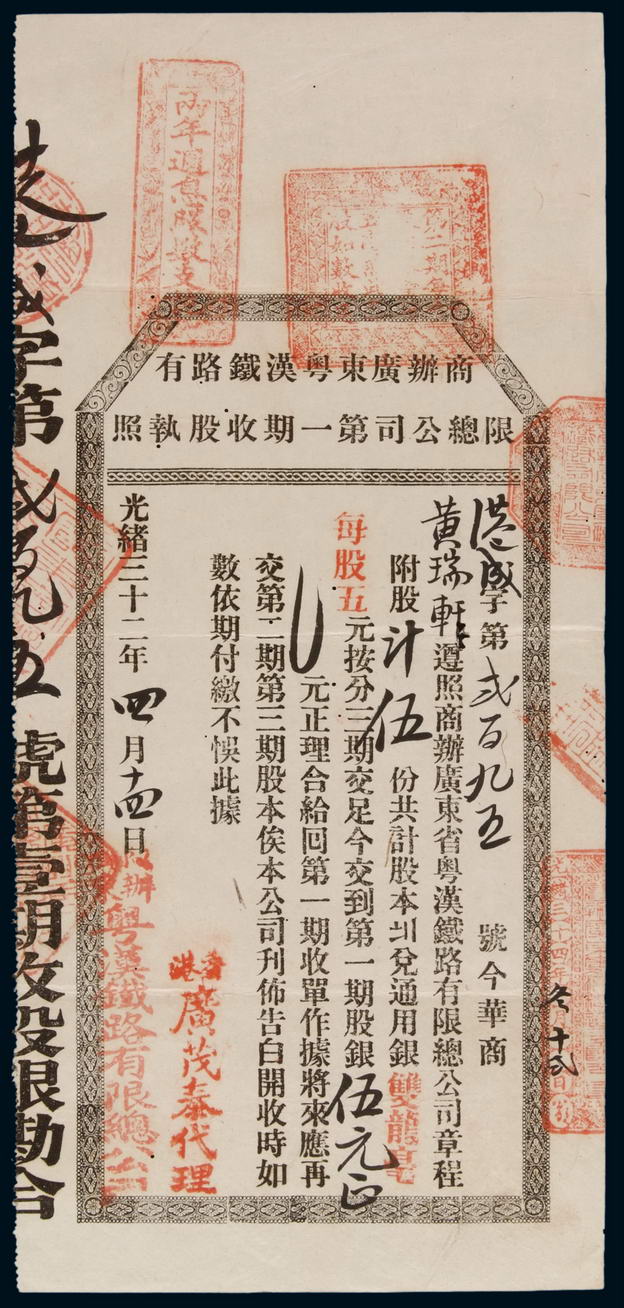 商辦廣東粵漢鐵路有
限總公司第一期收股執照
港盛字第弍百九五號今華商
黃瑞軒遵照商辦廣東省粵漢鐵路有限總公司章程
附股計伍份共計股本刌兌通用銀雙龍毫
每股五元按分三期交足今交到第一期股銀伍元正
元正理合給回第一期收單作據將來應再
交第二期第三期股本俟本公司刊佈告白開收時如
數依期付繳不悞此據
光緒三十二年四月十四日
香港廣茂泰代理
辦粵漢鐵路有限總公
盛字第弍百九五號第壹期收股銀勘合
丙年週息限數支
第二期
光緒三十四年
冬十弍日